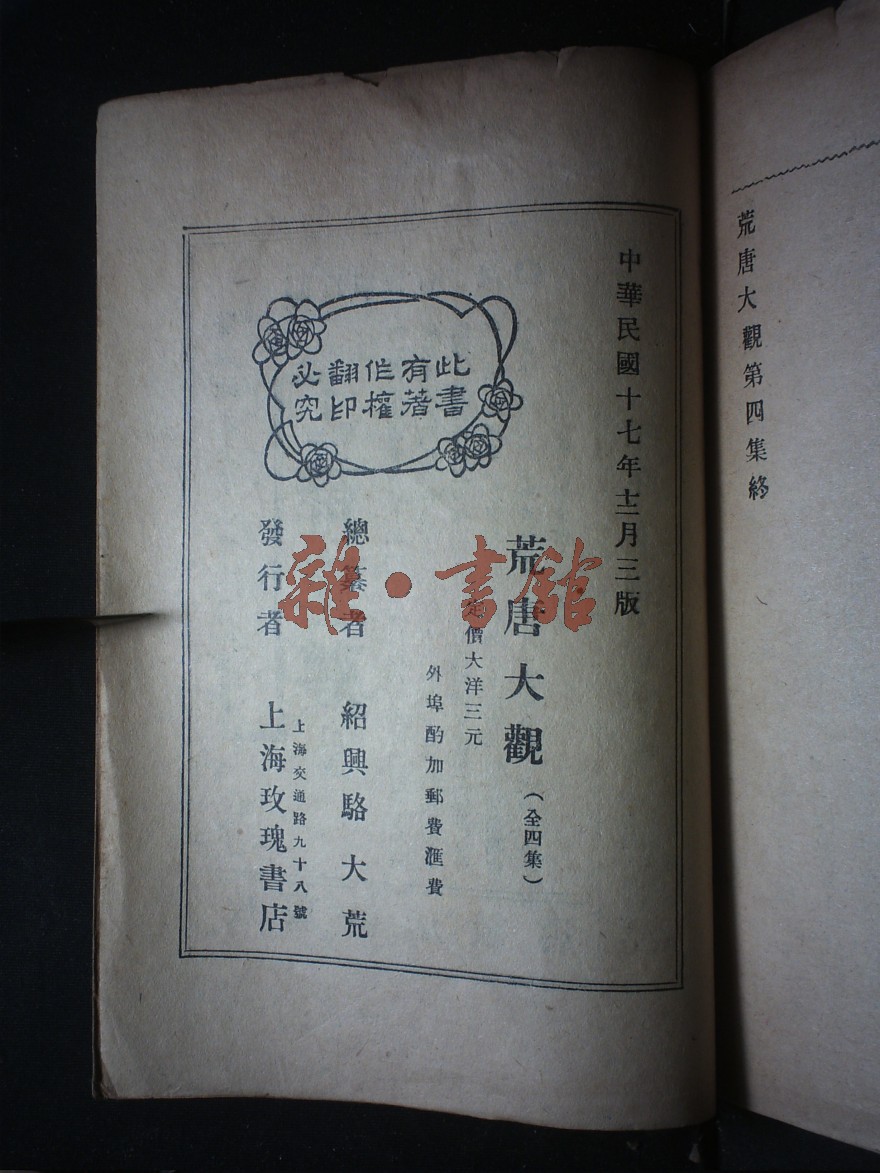 荒唐大觀第四集終
中華民國十七年十二月三版
此書
有著
作權
翻印
必究
荒唐大觀（全四集）
定價大洋三元
外埠酌加郵費滙費
總纂者　紹興駱大荒
上海交通路九十八號
發行者　上海玫瑰書店
雜·書館